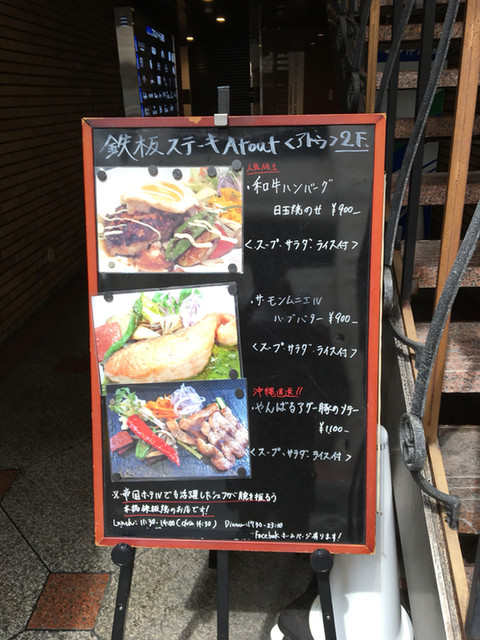 鉄板ステーキ Atout <アトゥ> 2F.
人気No.1
・和牛ハンバーグ
目玉焼のせ ¥900_
<スープ・サラダ・ライス付>
・サーモンムニエル
ハーブバター ¥900_
<スープ・サラダ・ライス付>
沖縄直送!!
・やんばるアグー豚のソテー
¥1,100_
<スープ・サラダ・ライス付>
※帝国ホテルでも活躍したシェフが腕を振るう
本格鉄板焼のお店です!
Lunch: 11:30-14:00 (close 14:30) Dinner 17:30-23:00
Facebook ホームページ有ります!